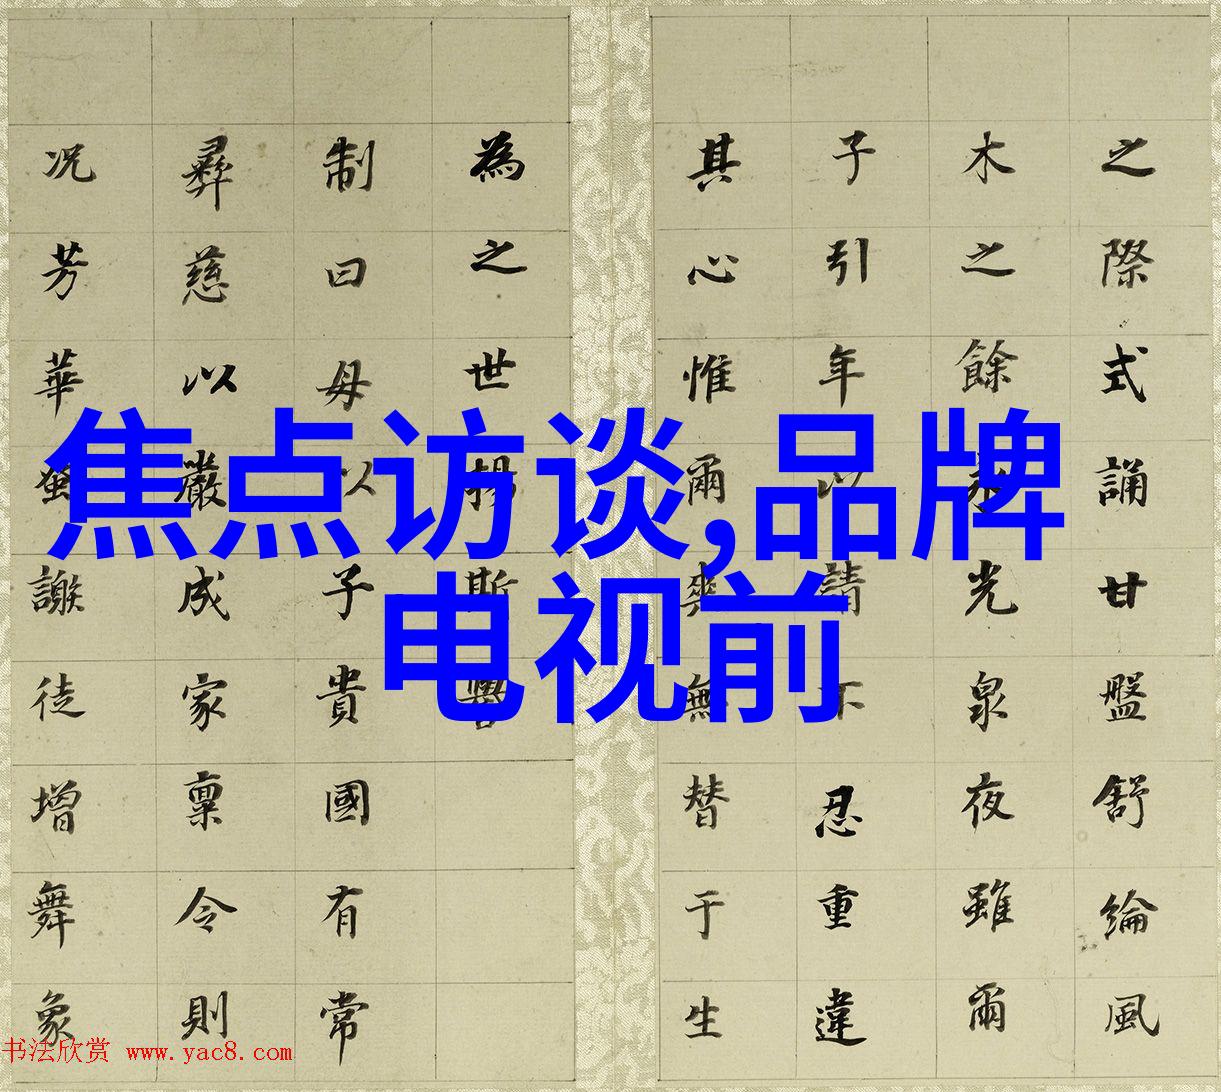 之際式誦甘盤舒綸風
木之餘光泉夜雖爾
子引年以請不忍重違
其心惟爾奭無替于生
為之世揚斯
制曰母以子貴國有常
彝慈以嚴成家稟令則
况芳華蚤謝徒增舞象
焦点访谈,品牌
电视前
书法欣赏 www.yac8.com